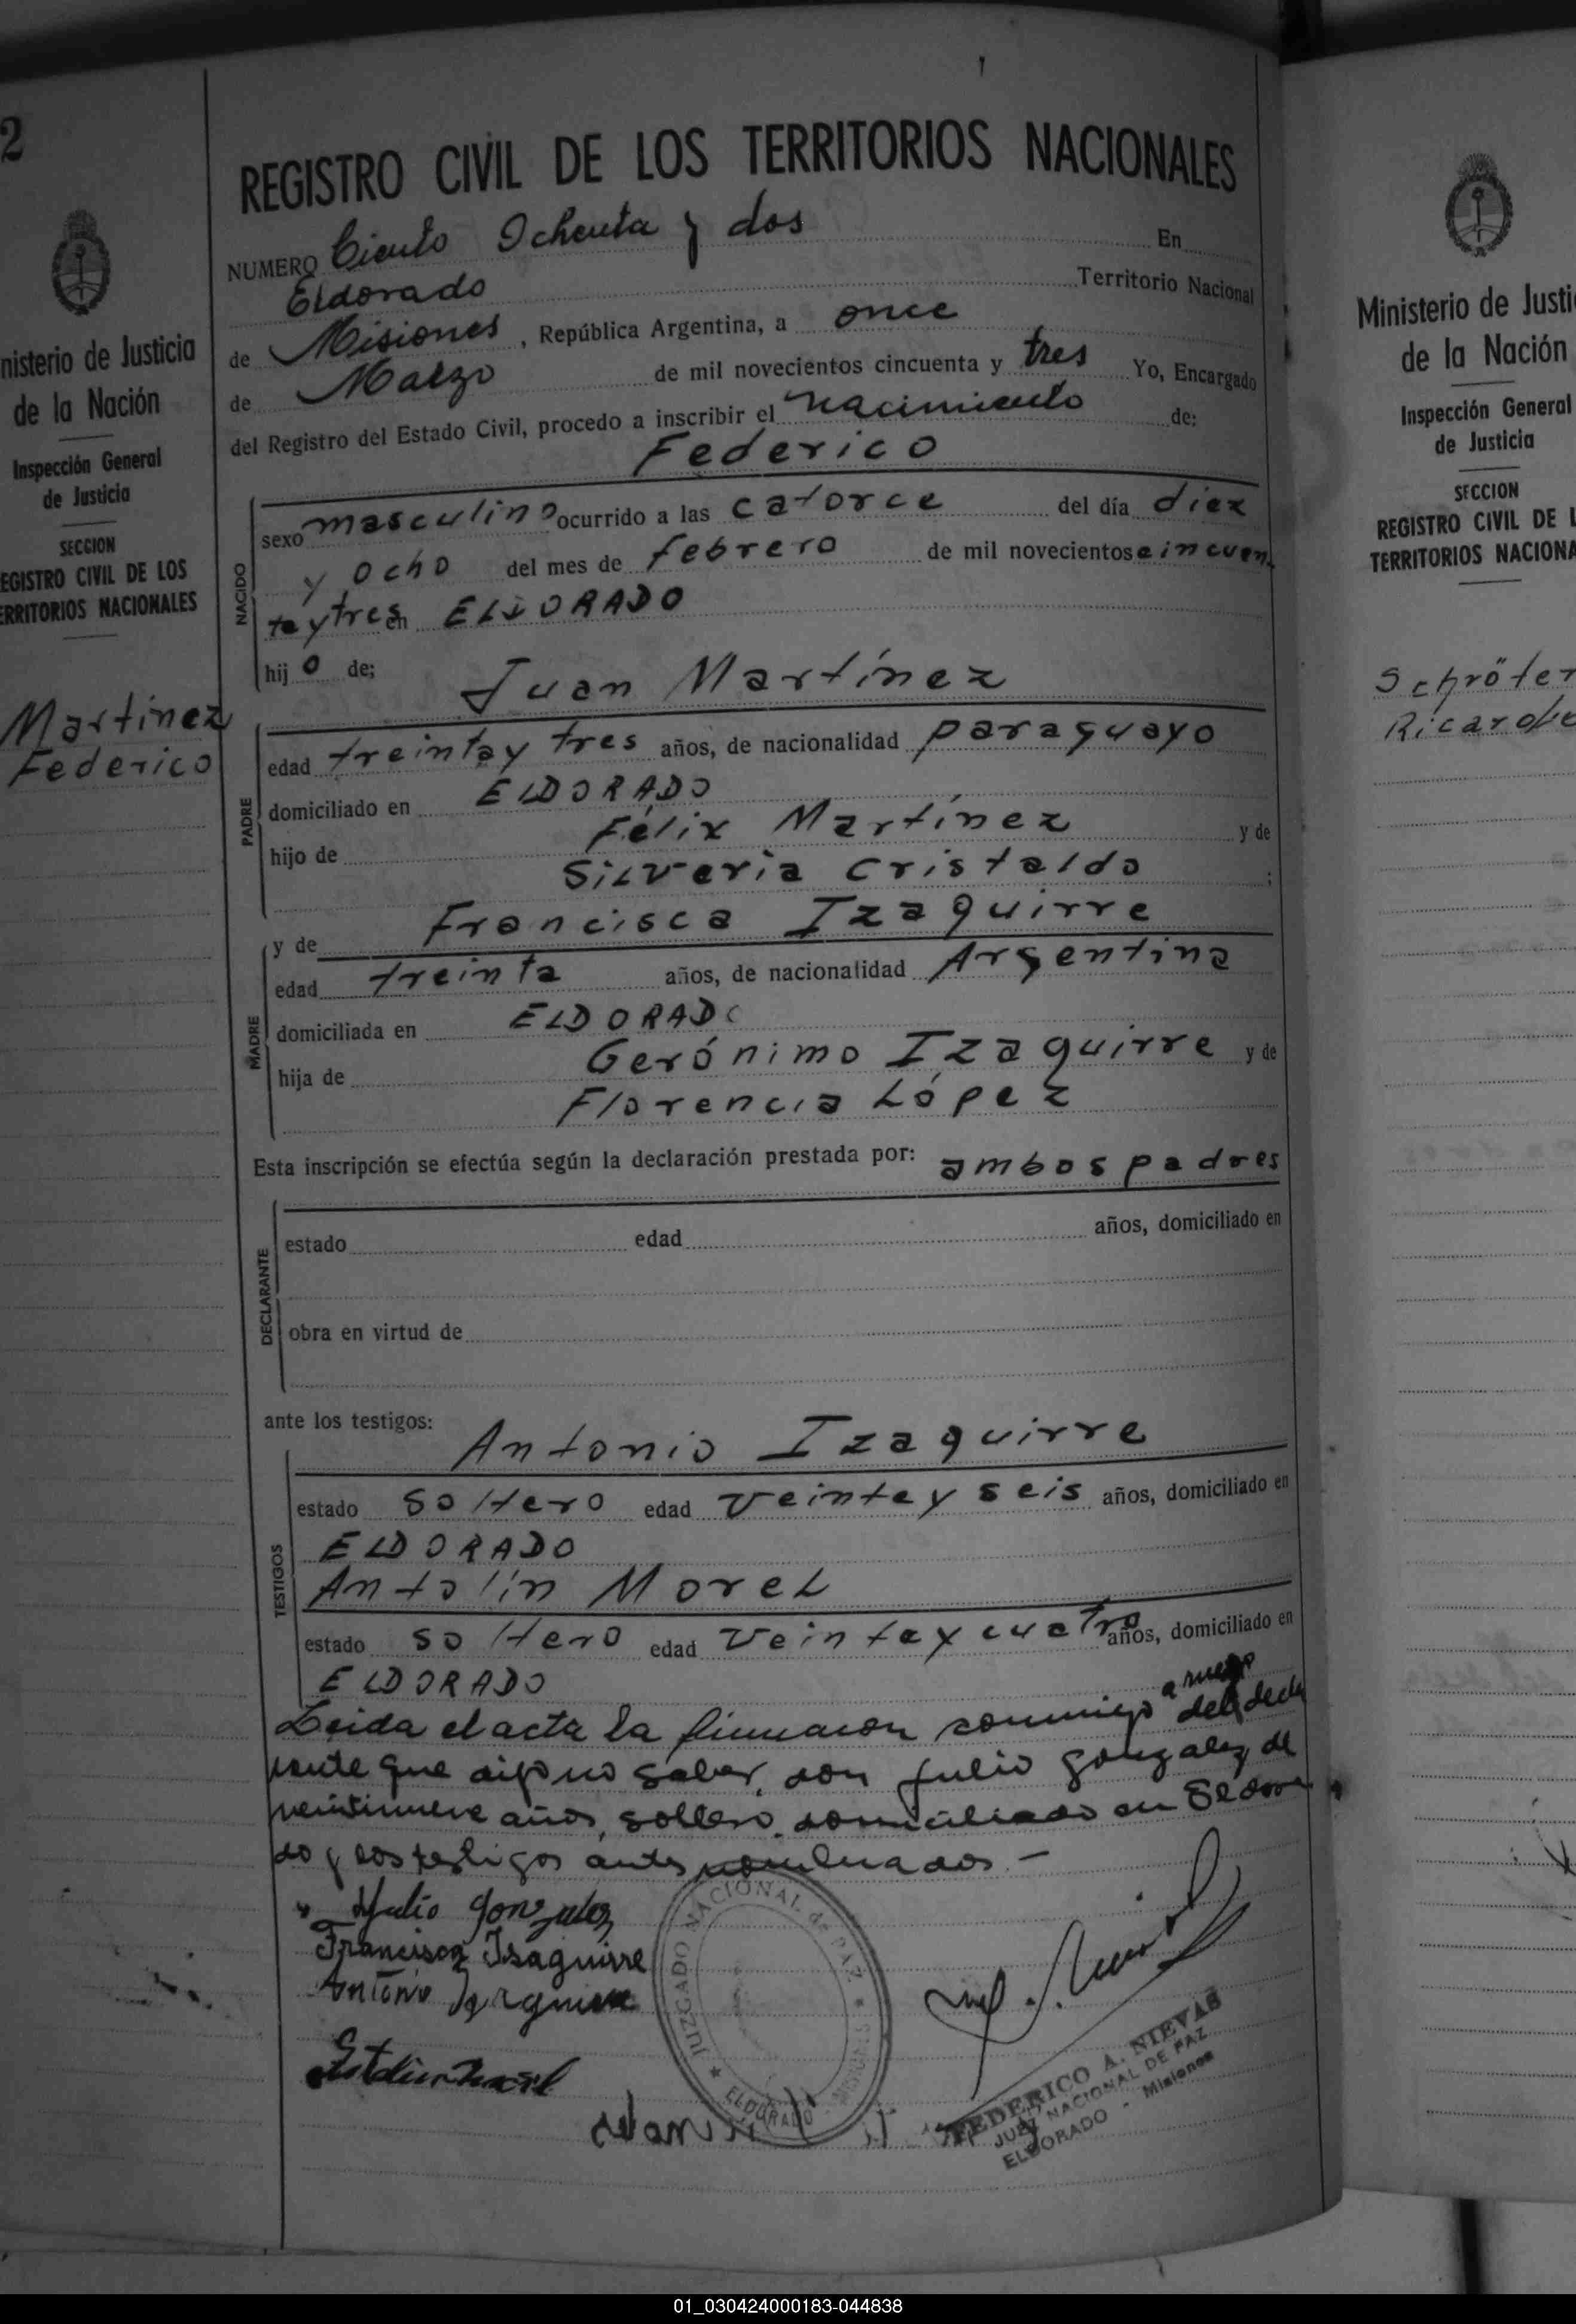 2
nisterio de Justicia
de la Nación
Inspección General
de Justicia
SECCION
EGISTRO CIVIL DE LOS
ERRITORIOS NACIONALES
Martinez
Federico
REGISTRO CIVIL DE LOS TERRITORIOS NACIONALES
NUMERO Ciento Ochenta y dos En
Eldorado Territorio Nacional
de Misiones, República Argentina, a once
de Marzo de mil novecientos cincuenta y tres Yo, Encargado
del Registro del Estado Civil, procedo a inscribir el nacimiento de:
Federico
NACIDO
sexo masculino ocurrido a las catorce del día diez
y ocho del mes de febrero de mil novecientos cincuen
ta y tres en ELDORADO
hijo de;
Juan Martínez
PADRE
edad treinta y tres años, de nacionalidad paraguayo
domiciliado en ELDORADO
hijo de Félix Martínez y de
Silveria Cristaldo ;
MADRE
y de Francisca Izaguirre
edad treinta años, de nacionalidad Argentina
domiciliada en ELDORADO
hija de Gerónimo Izaguirre y de
Florencia López
Esta inscripción se efectúa según la declaración prestada por: ambos padres
DECLARANTE
estado edad años, domiciliado en
obra en virtud de
ante los testigos:
Antonio Izaguirre
TESTIGOS
estado soltero edad veinte y seis años, domiciliado en
ELDORADO
Antolín Morel
estado soltero edad veinta y cuatro años, domiciliado en
ELDORADO
Leida el acta la firmaron conmigo a ruego del decla
rante que dijo no saber, don Julio Gonzalez, de
veintinueve años, soltero, domiciliado en Eldora
do y los testigos antes nombrados.-
Julio Gonzalez
Francisca Isaguirre
Antonio
JUZGADO NACIONAL de PAZ
ELDORADO - MISIONES
FEDERICO A. NIEVAS
JUEZ NACIONAL DE PAZ
ELDORADO - Misiones
Ministerio de Justi
de la Nación
Inspección General
de Justicia
SECCION
REGISTRO CIVIL DE L
TERRITORIOS NACIONA
Schröter
Ricardo
01_030424000183-044838